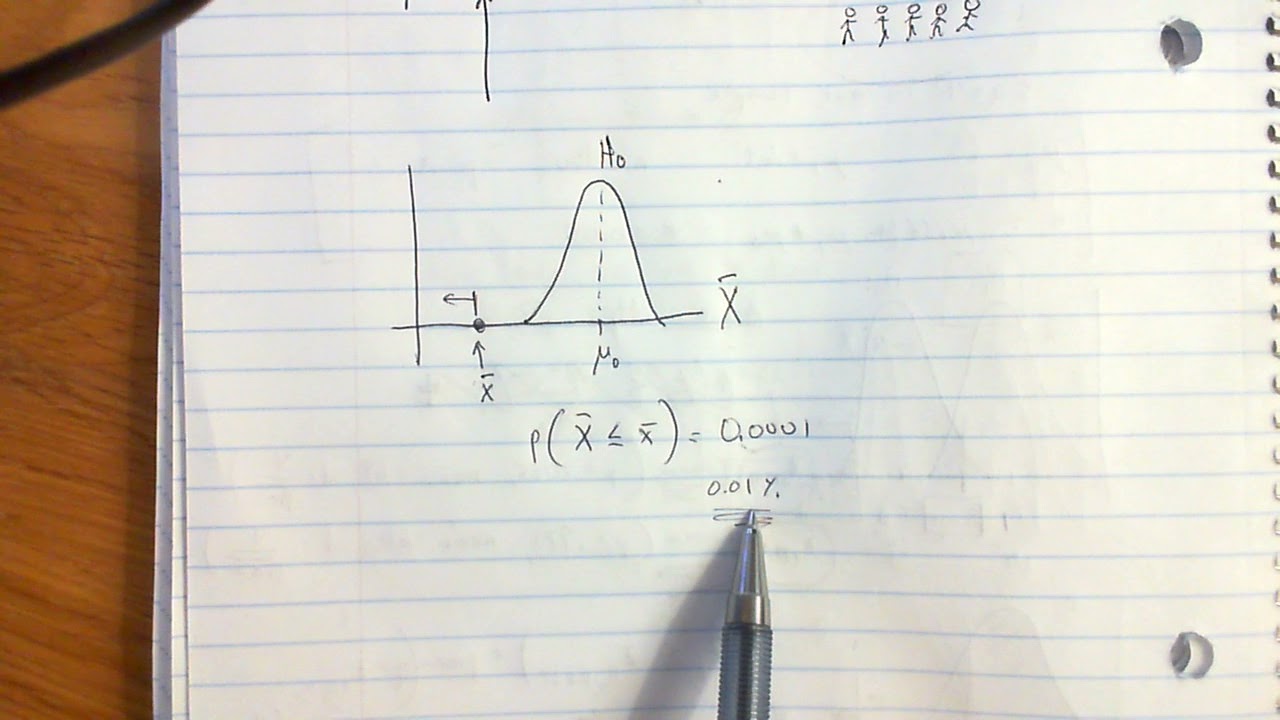 H₀
X̄
μ₀
x̄
p(X̄ ≤ x̄) = 0.0001
0.01%